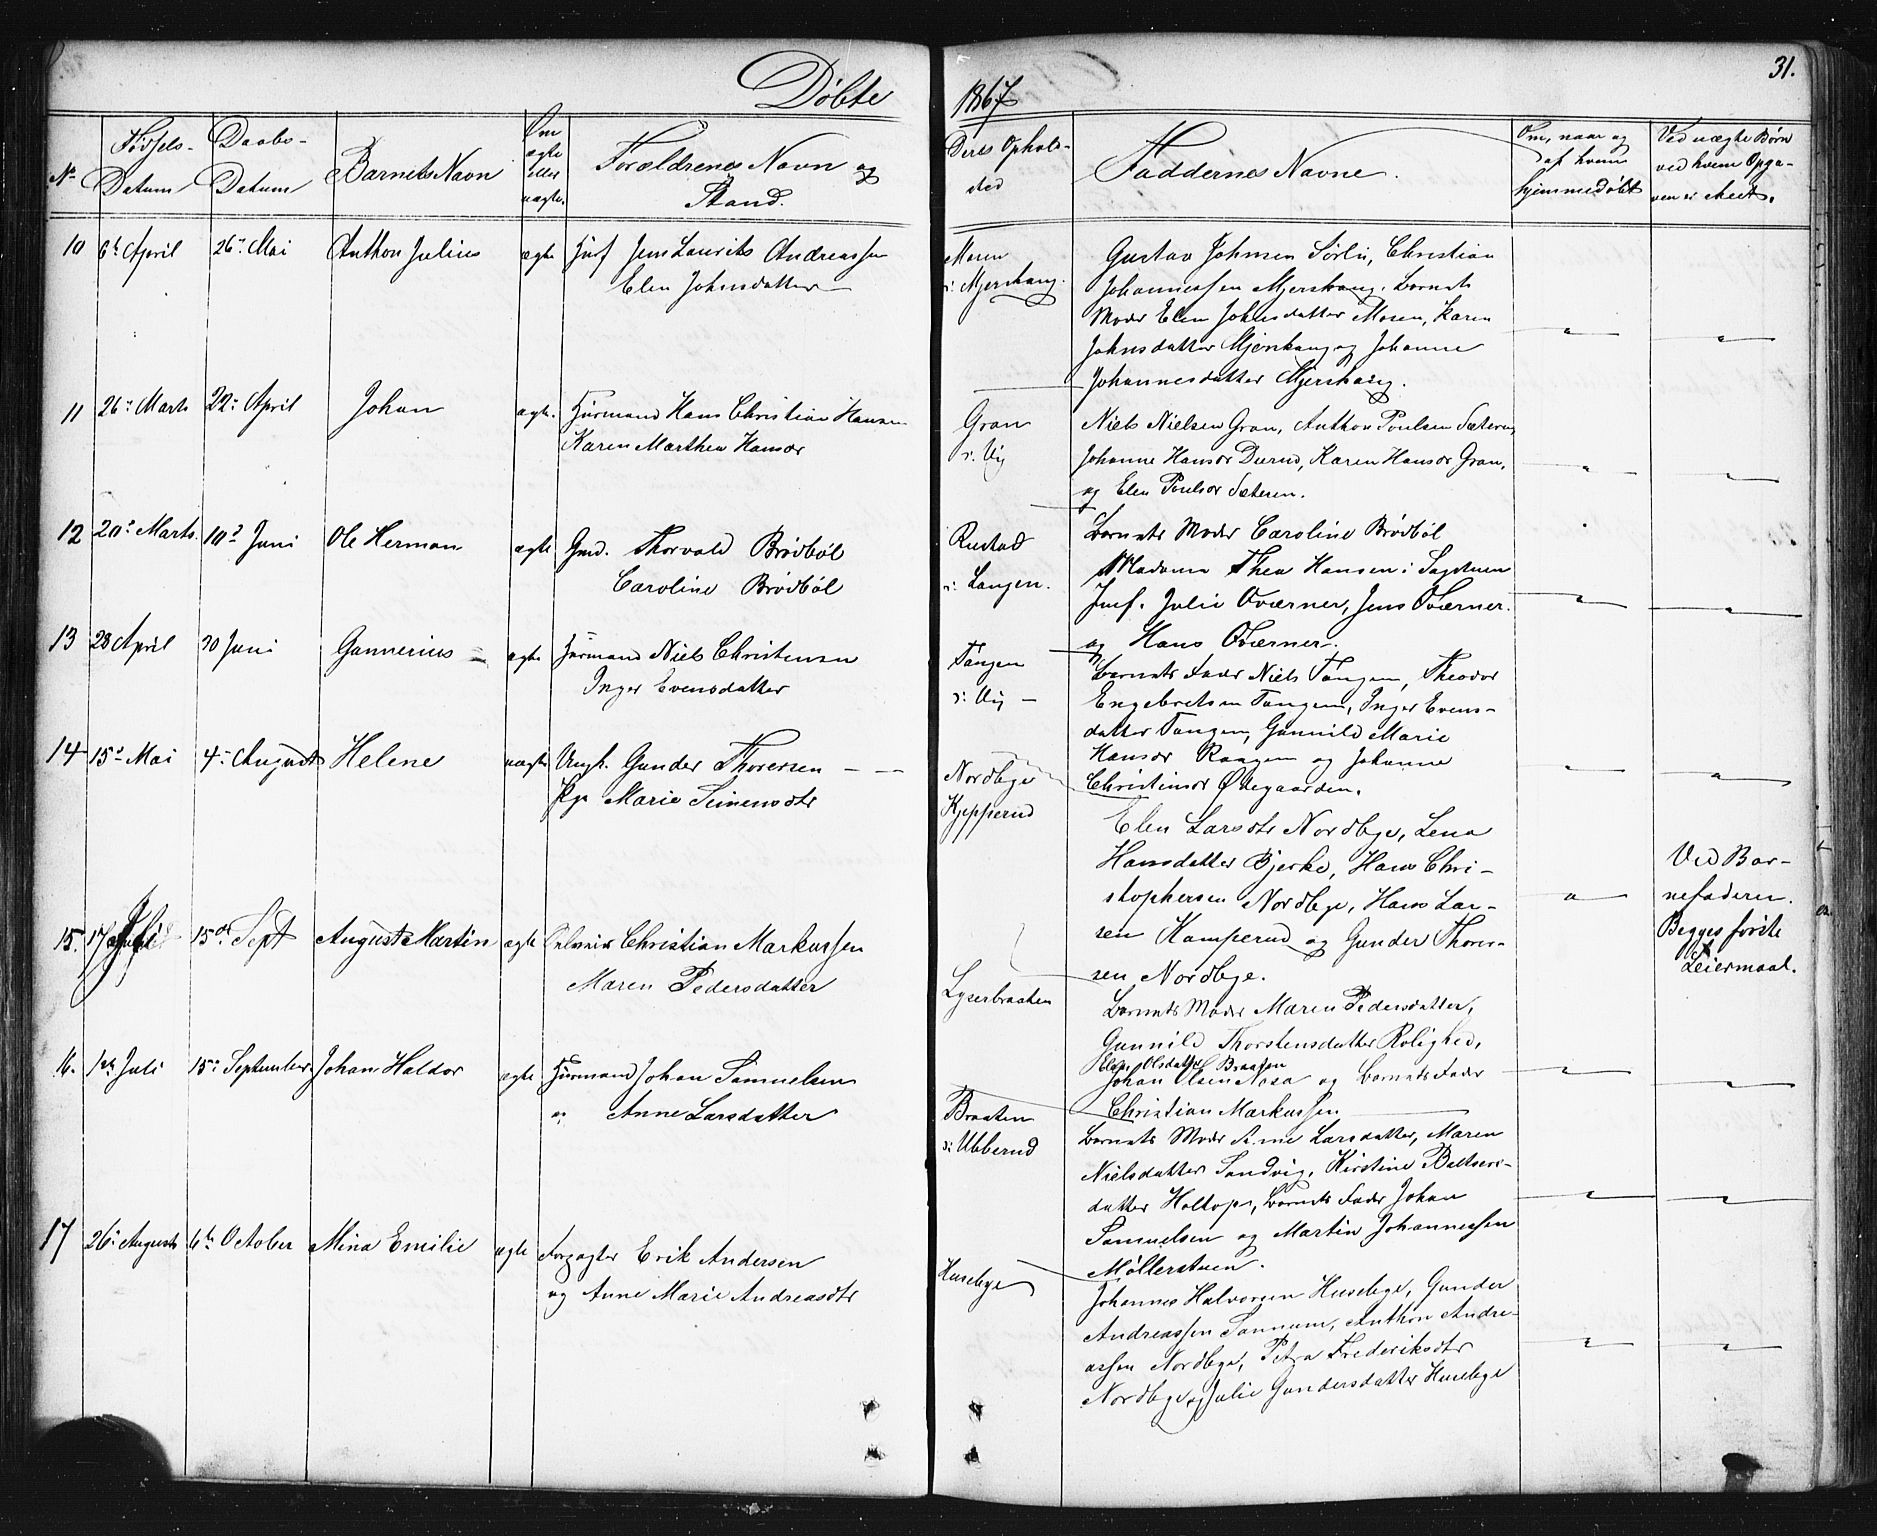 Døbte
1867
31.
No
Fødsels-
Datum
Daabs-
Datum
Barnets Navn
Om
ægte
eller
uægte.
Forældrenes Navn og
Stand.
Deres Ophold-
sted
Faddernes Navne.
Om, naar og
af hvem
hjemmedøbt
Ved uægte Børn
ved hvem Opga-
ven er skeet.
10 6te April 26de Mai Anthon Julius ægte Jens Laurits Andreassen
Elen Johnsdatter
Moren
i: Mjerskaug.
Gustav Johnsen Sørli, Christian
Johannessen Mjerskaug, Barnets
Moder Elen Johnsdatter Moren, Karen
Johnsdatter Mjerskaug og Johanne
Johannesdatter Mjerskaug.
11 26de Marts 22de April Johan ægte. Huusmand Hans Christian Hansen
Karen Marthea Hansdr
Gran
i: Vig
Niels Nielsen Gran, Anthon Poulsen Sæteren,
Johanne Hansdr Dierud, Karen Hansdr Gran,
og Elen Poulsdr Sæteren.
12 20de Marts. 10de Juni Ole Herman ægte Gmd. Thorvald Brødbøl
Caroline Brødbøl
Rustad
i: Langen.
Barnets Moder Caroline Brødbøl
Madame Thea Hansen i Sagstuen
Jmf. Julie Oværner, Jens Oværner.
og Hans Oværner.
13 28 April 30 Juni Gunnerius ægte Huusmand Niels Christensen
Inger Evensdatter
Tangen
i: Vig
Barnets Fader Niels Tangen, Theodor
Engebretsen Tangen, Inger Evens-
datter Tangen, Gunnild Marie
Hansdr Raagen og Johanne
Christiansdr Ødegaarden.
14 15de Mai 4de August Helene uægte Ungk. Gunder Thoresen
Pige Marie Simensdtr
Nordbye
Kjepperud
Elen Larsdtr Nordbye, Lena
Hansdatter Bjerke, Hans Chri-
stophersen Nordbye, Hans Lar-
sen Kamperud og Gunder Thore-
sen Nordbye.
Ved Bar-
nefaderen.
Begges første
Leiermaal.
15. 17 Juli 15de Sept August Martin ægte Christian Markussen
Maren Pedersdatter
Lyserbraaten
Barnets Moder Maren Pedersdatter,
Gunnild Thorstensdatter Rolighed,
Elen Olsdatter Braaten
Johan Olsen Næsa og Barnets Fader
Christian Markussen
16. 1ste Juli 15de September Johan Haldor ægte Huusmand Johan Samuelsen
og Anne Larsdatter
Braaten
i: Ubberud
Barnets Moder Anne Larsdatter, Maren
Nielsdatter Sandvig, Kirstine Baltsers-
datter Holtop, Barnets Fader Johan
Samuelsen og Martin Johannessen
Møllerstuen.
17 26de August 6te October Mina Emilie ægte Forpagter Erik Andersen
og Anne Marie Andreasdtr
Husebye
Johannes Halvorsen Husebye, Gunder
Andreassen Sannum, Anthon Andre-
assen Nordbye, Petra Frederiksdtr
Nordbye, og Julie Gundersdatter Husebye